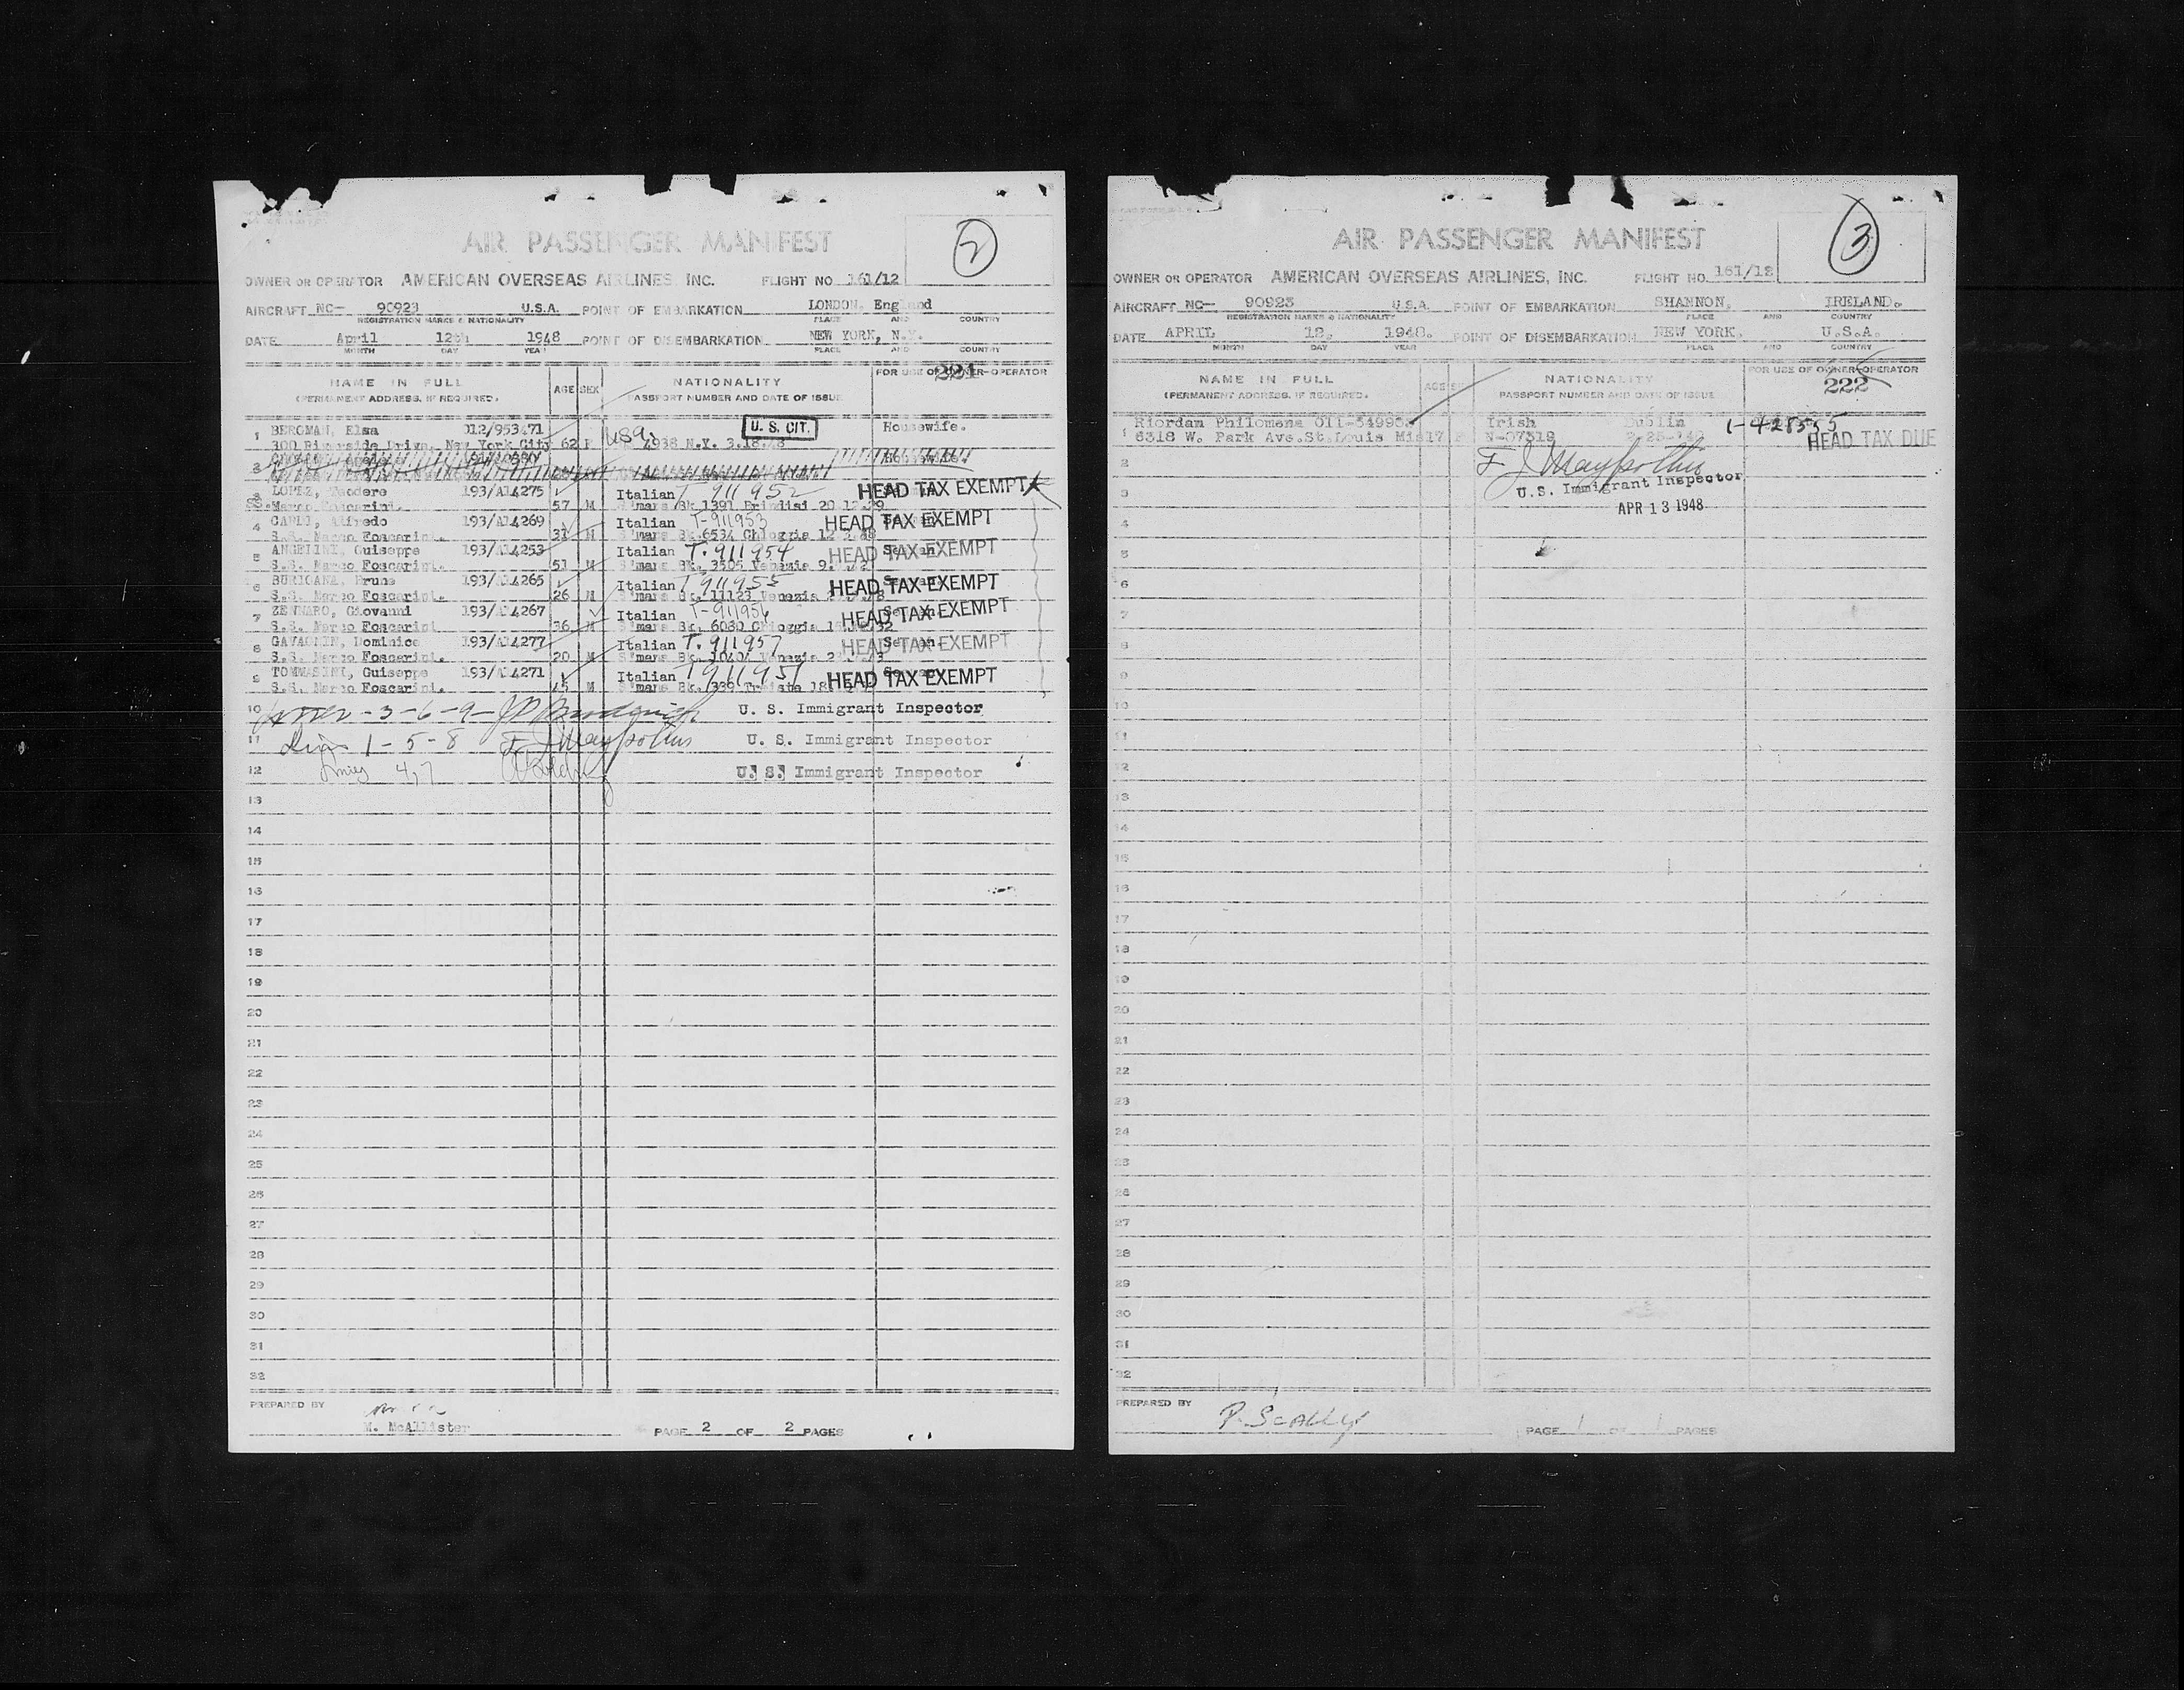 AIR PASSENGER MANIFEST
2
OWNER OR OPERATOR AMERICAN OVERSEAS AIRLINES, INC. FLIGHT NO 161/12
AIRCRAFT NC- 90923 U.S.A. POINT OF EMBARKATION LONDON, England
REGISTRATION MARKS & NATIONALITY PLACE AND COUNTRY
DATE April 12th 1948 POINT OF DISEMBARKATION NEW YORK, N.Y.
MONTH DAY YEAR PLACE AND COUNTRY
NAME IN FULL AGE SEX NATIONALITY FOR USE OF OWNER-OPERATOR
221
(PERMANENT ADDRESS, IF REQUIRED) PASSPORT NUMBER AND DATE OF ISSUE
1 BERGMAN, Elsa 012/953471 U. S. CIT. Housewife.
300 Riverside Drive, New York City 62 F USA. 4938 N.Y. 3.18.48
2
3 LOPEZ, Teodero 193/A14275 Italian T 911952 HEAD TAX EXEMPT
SS. Marco Foscarini. 57 M S'mans Bk 1391 Brindisi 20
4 CARLI, Alfredo 193/A14269 Italian T-911953 HEAD TAX EXEMPT
S.S. Marco Foscarini. 31 M S'mans Bk. 6534 Chioggia 12
5 ANGELINI, Guiseppe 193/A14253 Italian T. 911954 HEAD TAX EXEMPT
S.S. Marco Foscarini. 51 M S'mans Bk. 3505 Venezia 9.
6 BURIGANA, Bruno 193/A14265 Italian T 911955 HEAD TAX EXEMPT
S.S. Marco Foscarini. 26 M S'mans Bk. 11123 Venezia
7 ZENNARO, Giovanni 193/A14267 Italian T-911956 HEAD TAX EXEMPT
S.S. Marco Foscarini 36 M S'mans Bk. 6030 Chioggia
8 GAVAGNIN, Dominice 193/A14277 Italian T. 911957 HEAD TAX EXEMPT
S.S. Marco Foscarini. 20 M S'mans Bk. Venezia
9 TOMMASINI, Guiseppe 193/A14271 Italian HEAD TAX EXEMPT
S.S. Marco Foscarini. 45 M S'mans Bk. 339 Trieste
10 - 3-6-9- U. S. Immigrant Inspector
11 1-5-8 U. S. Immigrant Inspector
12 4,7 U. S. Immigrant Inspector
13
14
15
16
17
18
19
20
21
22
23
24
25
26
27
28
29
30
31
32
PREPARED BY
M. McAllister
PAGE 2 OF 2 PAGES
AIR PASSENGER MANIFEST
3
OWNER OR OPERATOR AMERICAN OVERSEAS AIRLINES, INC. FLIGHT NO. 161/12
AIRCRAFT NC- 90923 U.S.A. POINT OF EMBARKATION SHANNON, IRELAND.
REGISTRATION MARKS & NATIONALITY PLACE AND COUNTRY
DATE APRIL 12, 1948. POINT OF DISEMBARKATION NEW YORK. U.S.A.
MONTH DAY YEAR PLACE AND COUNTRY
NAME IN FULL AGE SEX NATIONALITY FOR USE OF OWNER-OPERATOR
(PERMANENT ADDRESS, IF REQUIRED) PASSPORT NUMBER AND DATE OF ISSUE 222
1 Riordan Philomena Irish Dublin
6318 W. Park Ave. St. Louis N-07319 HEAD TAX DUE
2
3 U.S. Immigrant Inspector
APR 13 1948
4
5
6
7
8
9
10
11
12
13
14
15
16
17
18
19
20
21
22
23
24
25
26
27
28
29
30
31
32
PREPARED BY P. Scally
PAGE 1 OF 1 PAGES